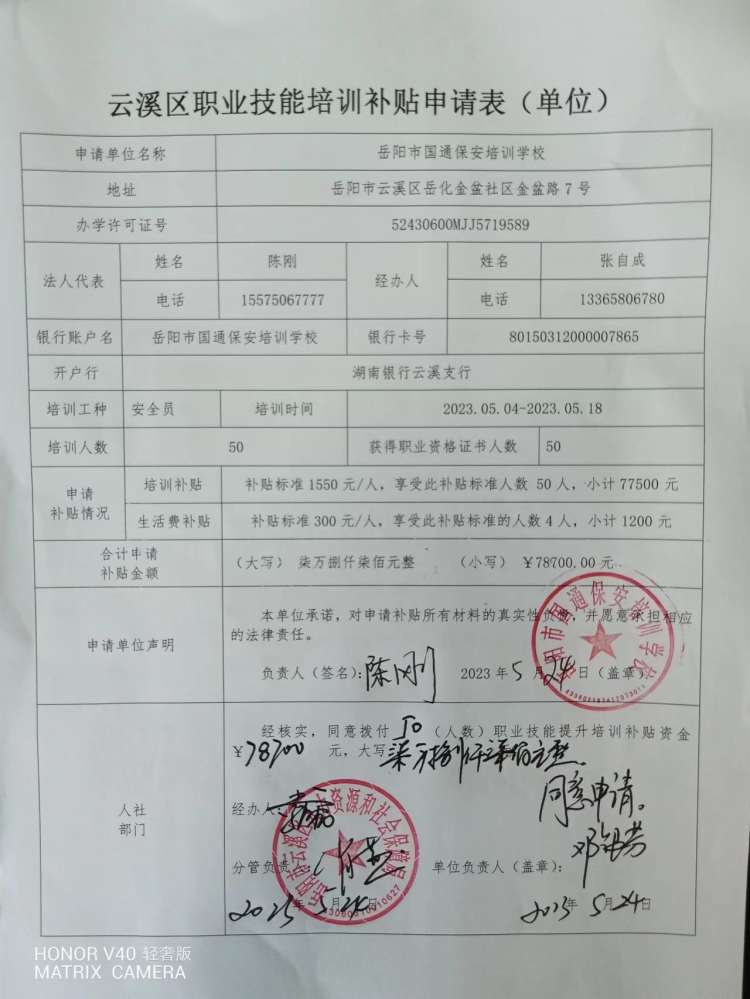 云溪区职业技能培训补贴申请表（单位）
申请单位名称 岳阳市国通保安培训学校
地址 岳阳市云溪区岳化金盆社区金盆路7号
办学许可证号 52430600MJJ5719589
法人代表 姓名 陈刚 经办人 姓名 张自成
电话 15575067777 电话 13365806780
银行账户名 岳阳市国通保安培训学校 银行卡号 80150312000007865
开户行 湖南银行云溪支行
培训工种 安全员 培训时间 2023.05.04-2023.05.18
培训人数 50 获得职业资格证书人数 50
申请
补贴情况
培训补贴 补贴标准1550元/人，享受此补贴标准人数 50人，小计77500元
生活费补贴 补贴标准300元/人，享受此补贴标准的人数4人，小计1200元
合计申请
补贴金额
（大写） 柒万捌仟柒佰元整 （小写） ￥78700.00元
申请单位声明
本单位承诺，对申请补贴所有材料的真实性负责，并愿意承担相应
的法律责任。
负责人（签名）：陈刚 2023年5月24日（盖章）
岳阳市国通保安培训学校
人社
部门
经核实，同意拨付 50 （人数）职业技能提升培训补贴资金
￥78700 元，大写柒万捌仟柒佰元整.
同意申请。
经办人：
分管负责人： 单位负责人（盖章）：
2023年5月24日 2023年5月24日
岳阳市云溪区人力资源和社会保障局
HONOR V40 轻奢版
MATRIX CAMERA